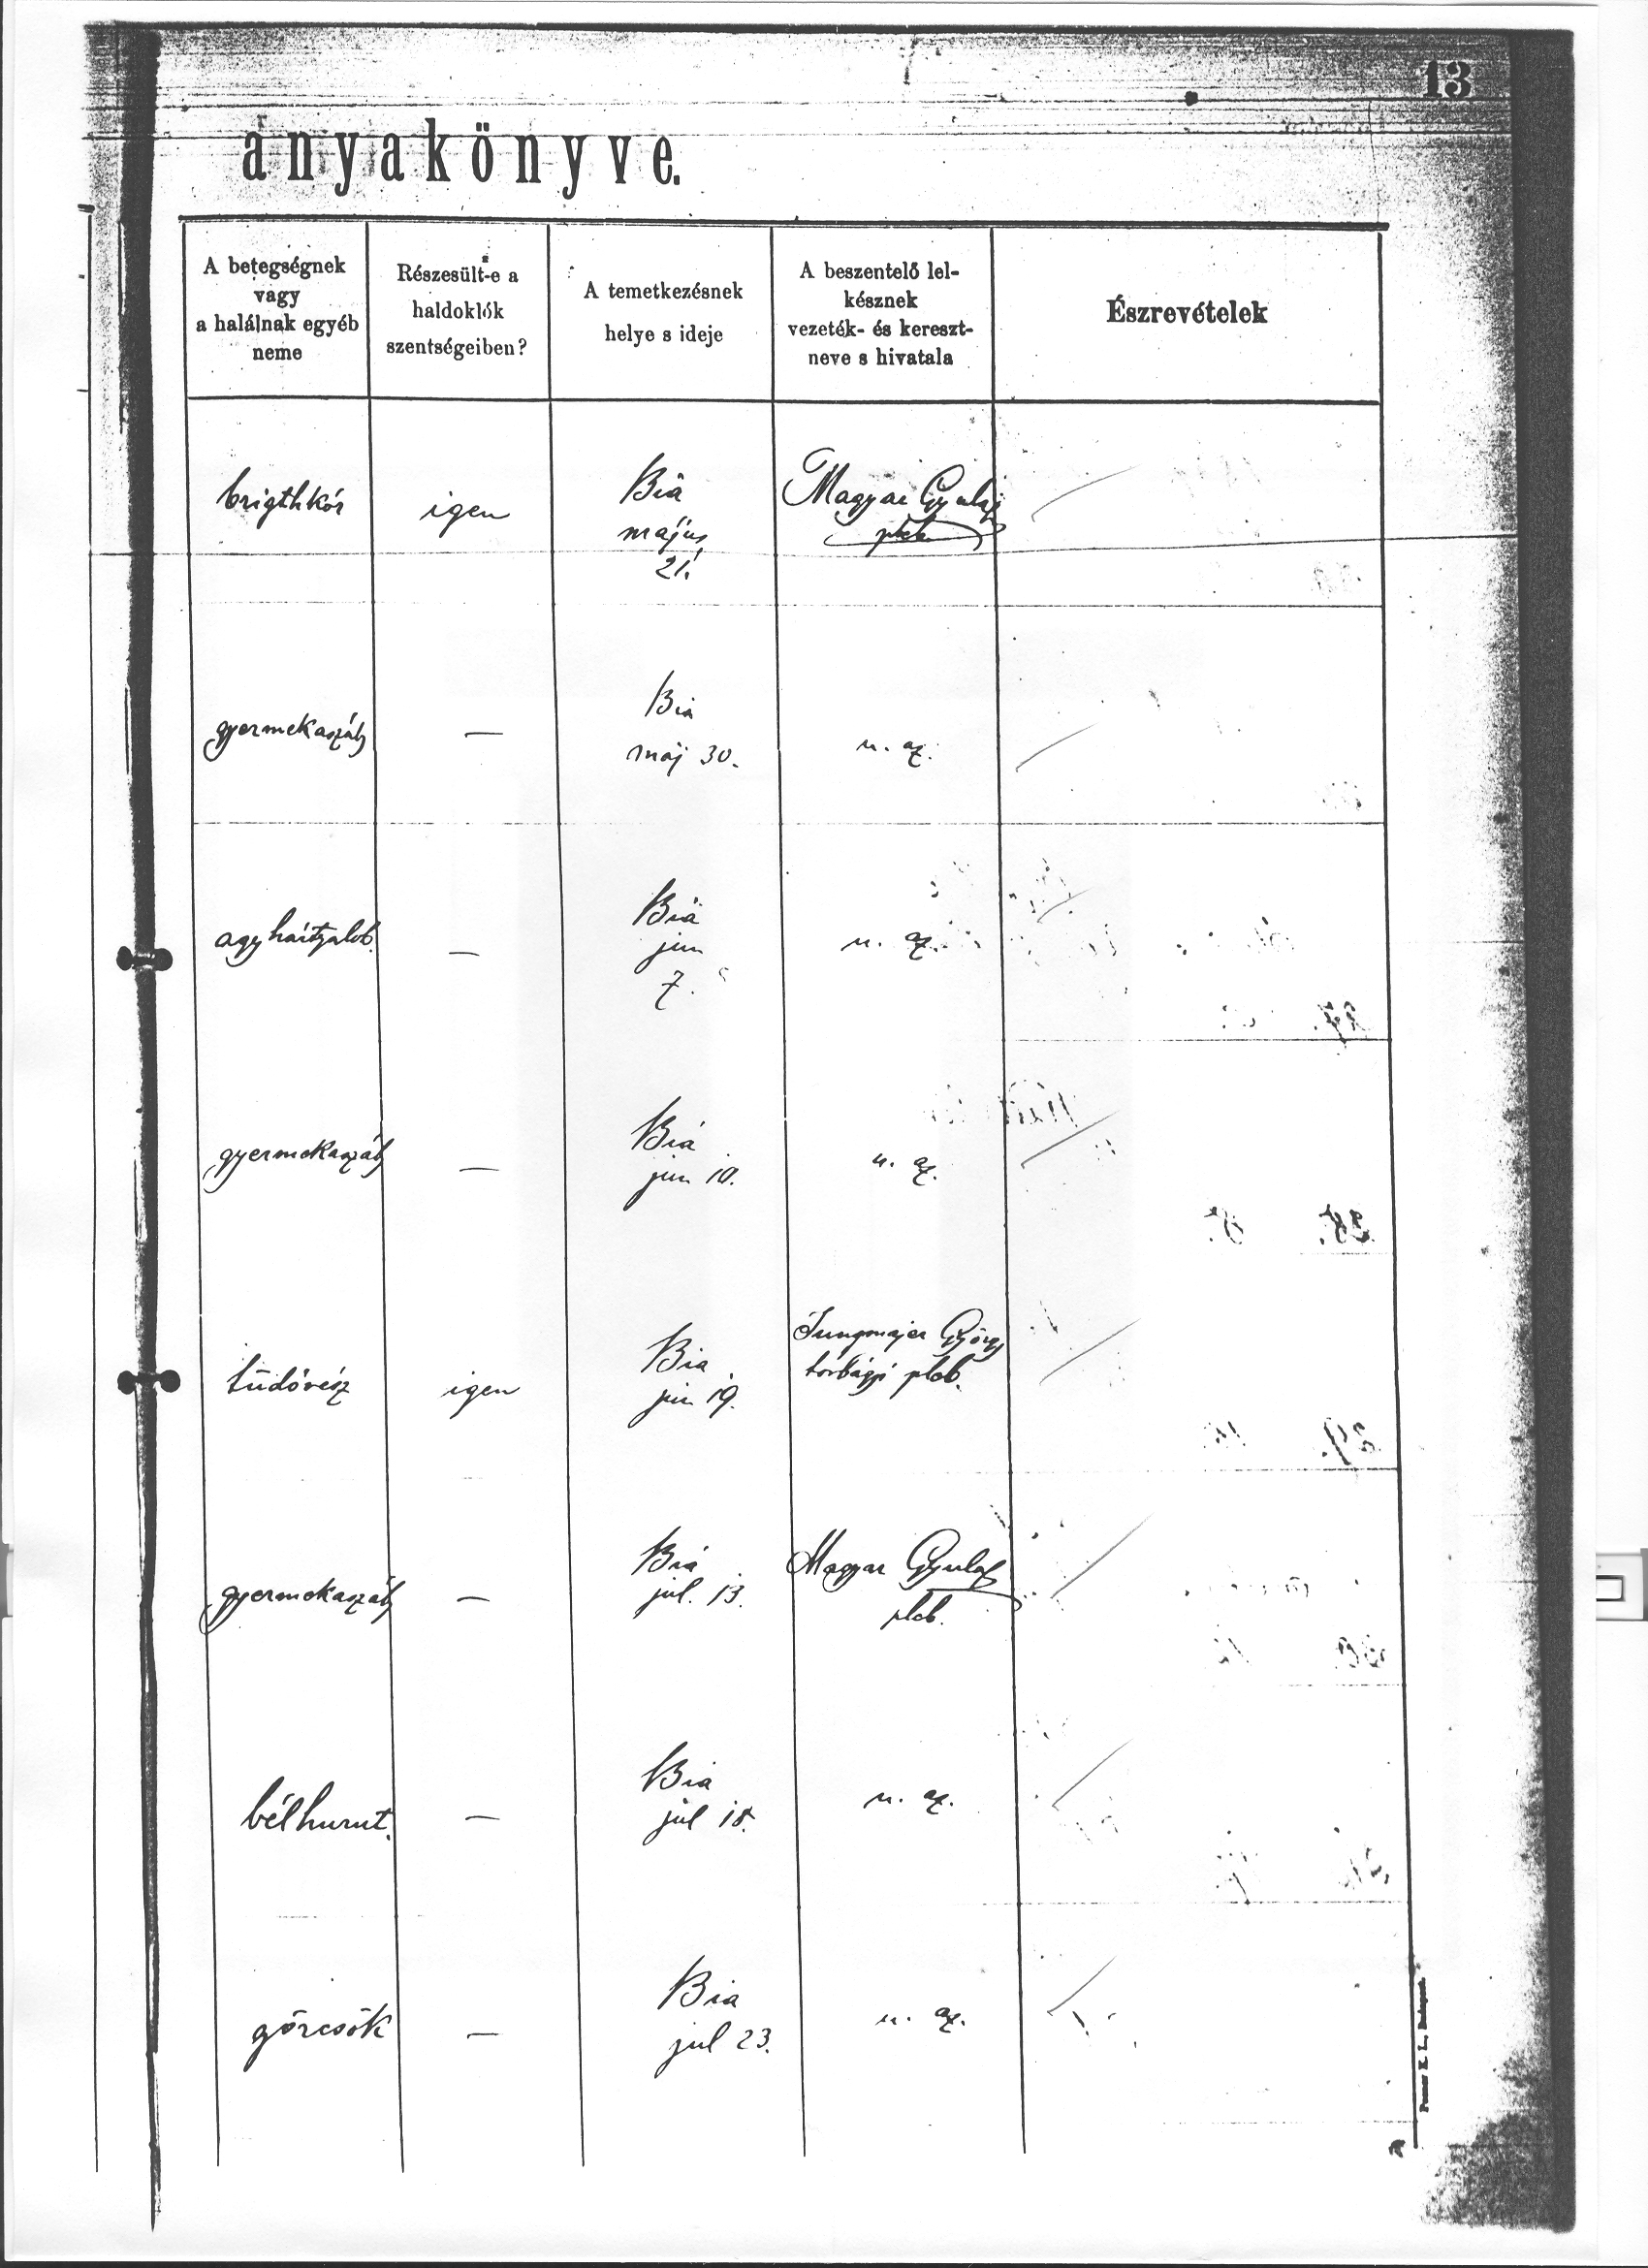 13
anyakönyve.
A betegségnek
vagy
a halálnak egyéb
neme
Részesült-e a
haldoklók
szentségeiben?
A temetkezésnek
helye s ideje
A beszentelő lel-
késznek
vezeték- és kereszt-
neve s hivatala
Észrevételek
brigthkór
igen
Bia
május
21.
Magyar Gyula
pleb.
gyermekaszály
—
Bia
máj 30.
u. az.
agyhártyalob.
—
Bia
jun
7.
u. az.
gyermekaszály
—
Bia
jun 10.
u. az.
tüdővész
igen
Bia
jun 19.
Jungmajer György
torbágyi pleb.
gyermekaszály
—
Bia
jul. 13.
Magyar Gyula
pleb.
bélhurut.
—
Bia
jul 18.
u. az.
görcsök
—
Bia
jul 23.
u. az.